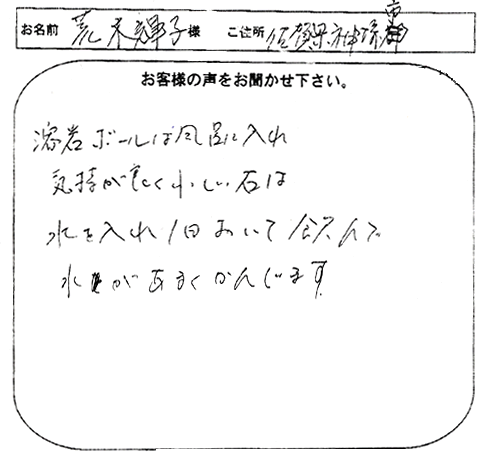 お名前 荒木輝子様 ご住所 佐賀県神埼市
お客様の声をお聞かせ下さい。
溶岩ボールは風呂に入れ
気持が良く小しい石は
水を入れ1日おいて飲んで
水が あまくかんじます